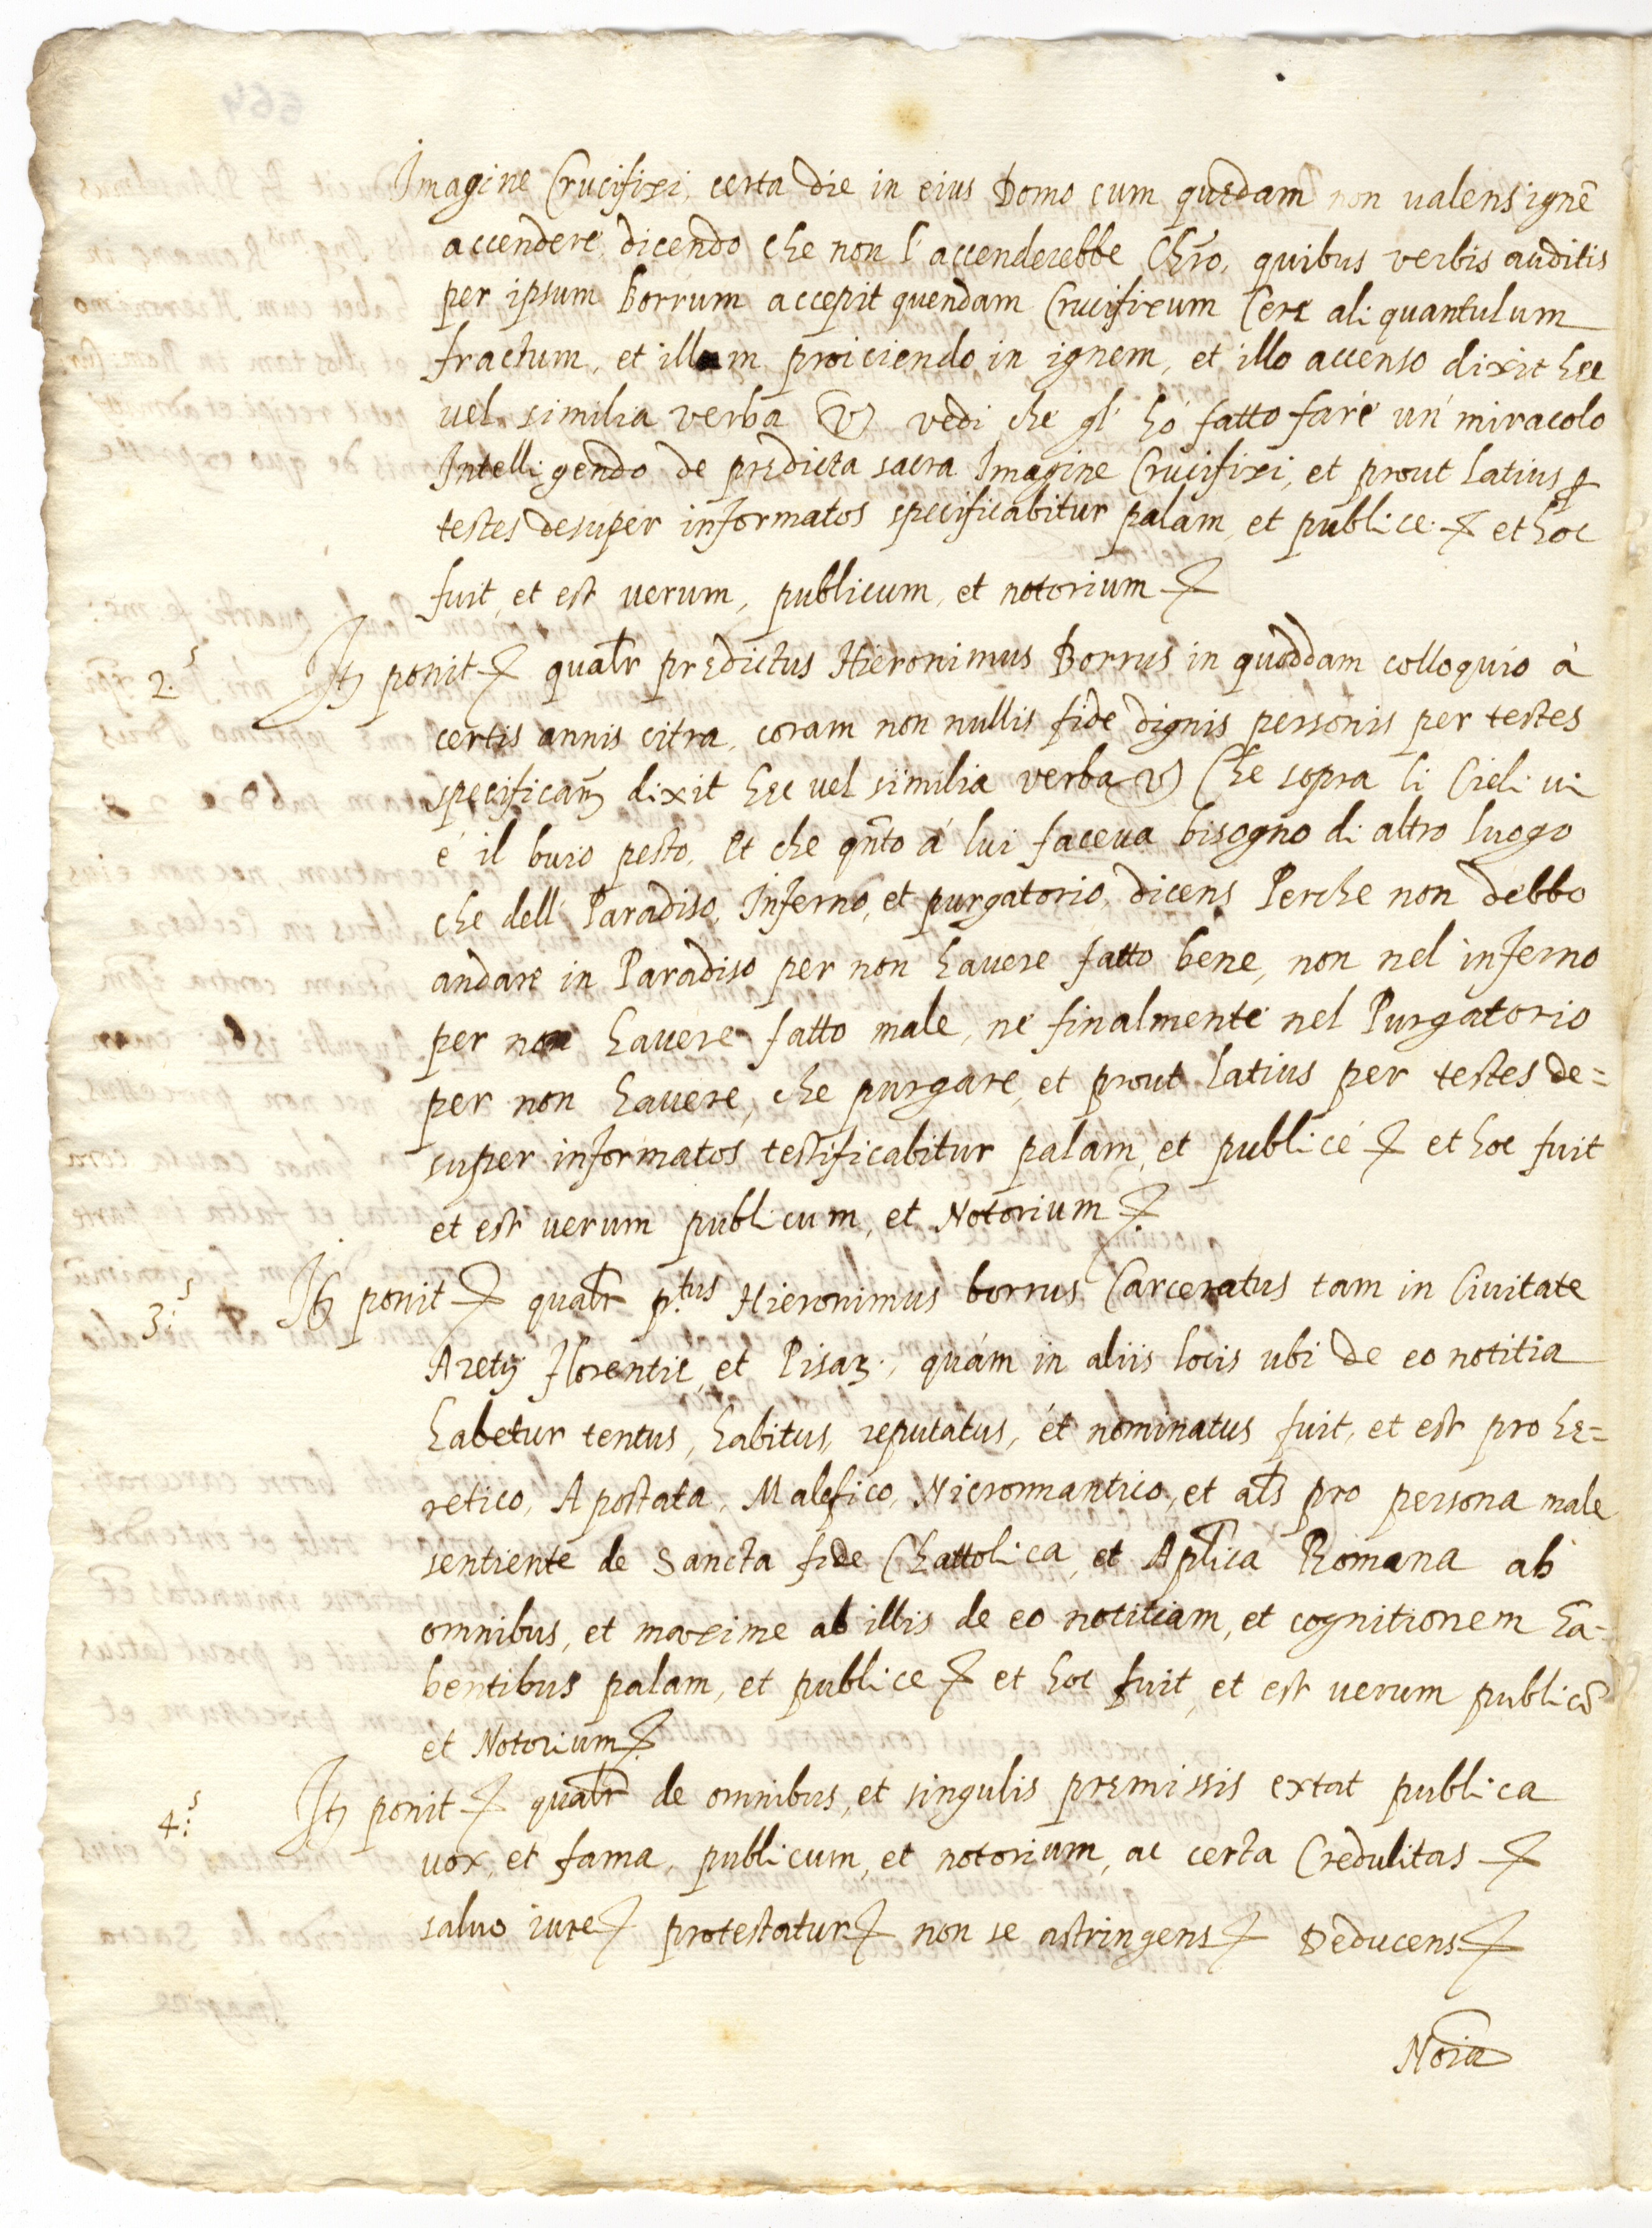 Imagine Crucifixi, certa die in eius Domo cum quędam non ualens ignē
accendere, dicendo che non l'accenderebbe Chr̄o, quibus verbis auditis
per ipsum Borrum accepit quendam Crucifixum Cerę aliquantulum
fractum, et illum proiciendo in ignem, et illo accenso dixit hęc
uel similia verba v vedi che gl'hó fatto fare un'miracolo
Intelligendo de prędicta sacra Imagine Crucifixi, et prout latius ꝑ
testes desuper informatos specificabitur palam, et publice & et hoc
fuit, et est uerum, publicum, et notorium &
2.s Itꝫ ponit & qualr prędictus Hieronimus Borrus in quoddam colloquio à
certis annis citra, coram non nullis fide dignis personis per testes
specificanꝫ dixit hęc uel similia verba v Che sopra li Cieli ui
é il buio pesto, Et che qn̄to á lui faceua bisogno di altro luogo
che dell'Paradiso, Inferno, et purgatorio, dicens Perche non debbo
andare in Paradiso per non hauere fatto bene, non nel inferno
per non hauere fatto male, ne finalmente nel Purgatorio
per non hauere, che purgare, et prout latius per testes de=
super informatos testificabitur palam, et publicé & et hoc fuit
et est uerum publicum, et Notorium &
3:s Itꝫ ponit & qualr p.tus Hieronimus borrus Carceratus tam in Ciuitate
Aretij florentię, et Pisaꝝ, quám in aliis locis ubi de eo notitia
habetur tentus, habitus, reputatus, et nominatus fuit, et est pro hę=
retico, Apostata, Malefico, Nicromantico, et als pro persona male
sentiente de Sancta fide Chattolica, et Aplica Romana ab
omnibus, et maxime ab illis de eo notitiam, et cognitionem ha-
bentibus palam, et publice & et hoc fuit, et est uerum publicū
et Notorium &
4:s Itꝫ ponit & qualr de omnibus, et singulis pręmissis extat publica
uox, et fama, publicum, et notorium, ac certa Credulitas &
saluo iure & protestatur & non se astringens & Deducens &
Noīa